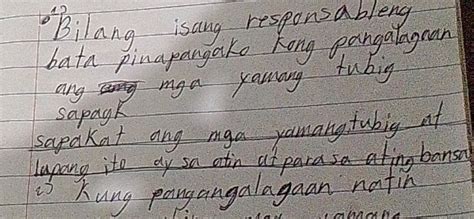 Bilang isang responsableng
bata pinapangako kong pangalagaan
ang mga yamang tubig
sapagk
sapakat ang mga yamang tubig at
lupang ito ay sa atin at para sa ating bansa
Kung pangangalagaan natin